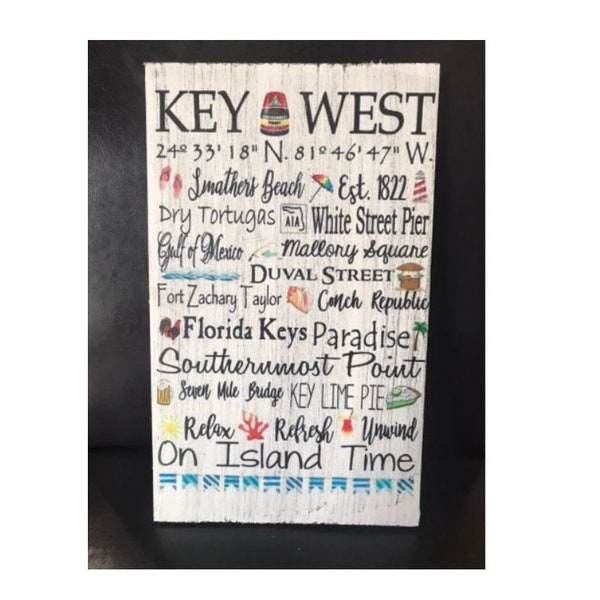 KEY WEST
24º 33' 18" N. 81º 46' 47" W.
Smathers Beach Est. 1822
Dry Tortugas A1A White Street Pier
Gulf of Mexico Mallory Square
DUVAL STREET
Fort Zachary Taylor Conch Republic
Florida Keys Paradise
Southernmost Point
Seven Mile Bridge KEY LIME PIE
Relax Refresh Unwind
On Island Time